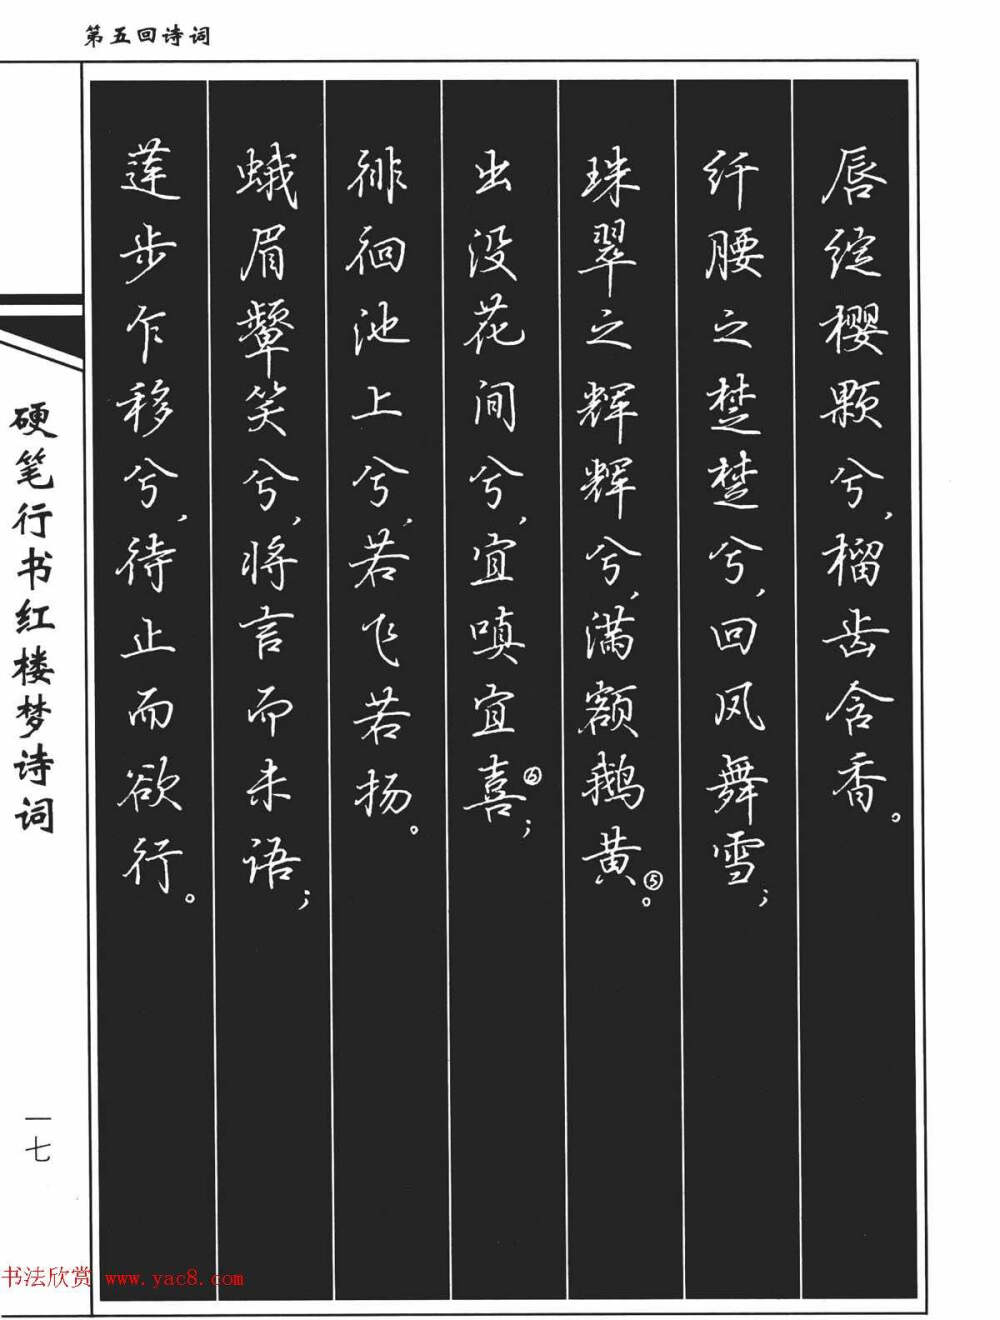 第五回诗词
唇绽樱颗兮，榴齿含香。
纤腰之楚楚兮，回风舞雪；
珠翠之辉辉兮，满额鹅黄⑤。
出没花间兮，宜嗔宜喜⑥；
徘徊池上兮，若飞若扬。
蛾眉颦笑兮，将言而未语；
莲步乍移兮，待止而欲行。
硬笔行书红楼梦诗词
一七
书法欣赏 www.yac8.com